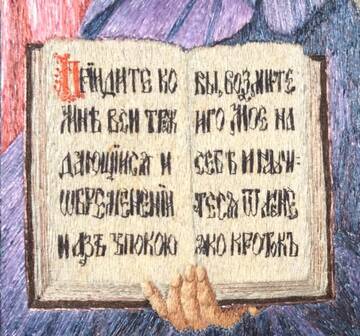 Прїидите ко
мнѣ вси трꙋж
дающїися и
ѡбремененїи
и азъ ѹпокою
вы, возмите
иго мое на
себѣ и наѹчи
тесѧ ѿ мене
ꙗко кротокъ